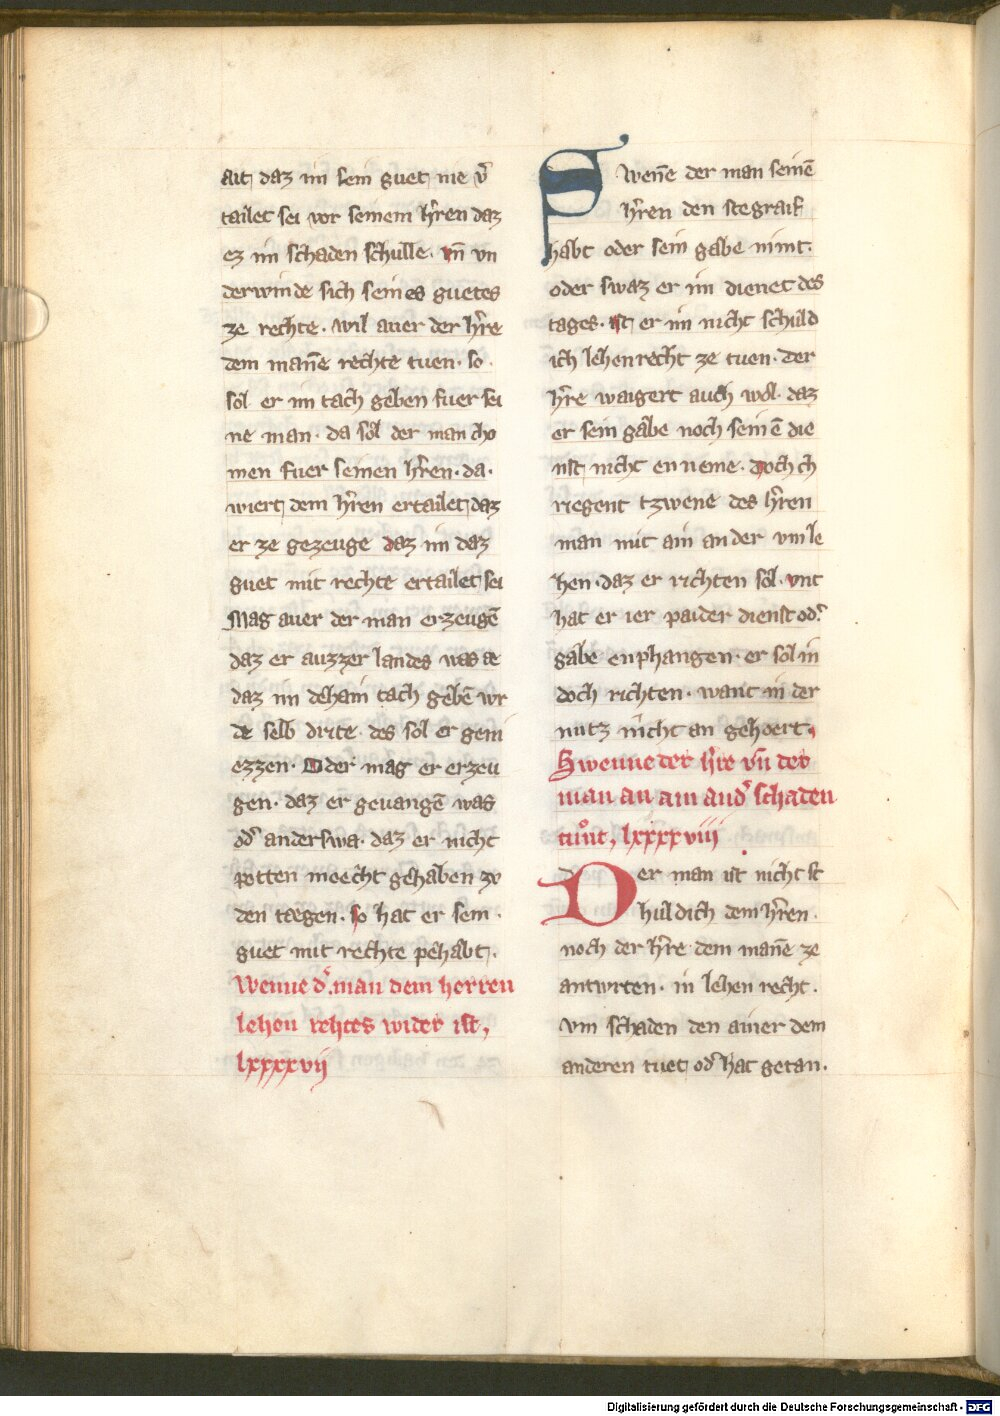 ait daz im sein guet nie v̄
tailet sei vor seinem h̄ren daz
ez im schaden schulle. vn̄ vn
derwinde sich seines guetes
ze rechte. wil auer der h̄re
dem man̄e rechte tuen. so.
sol er im tach geben fuer sei
ne man. da sol der man cho
men fuer seinen h̄ren. da.
wiert dem h̄ren ertailet daz
er ze gezeuge daz im daz
guet mit rechte ertailet sei
Mag auer der man erzeugē
daz er auzzer landes was æ
daz im dehain tach gebē wr
de selb drite. des sol er geni
ezzen. Oder mag er erzeu
gen. daz er geuangē was
od̓ anderswa. daz er nicht
potten moecht gehaben zv
den tægen. so hat er sein.
guet mit rechte pehabt.
Wenne d̓. man dem herren
lehen rehtes wider ist,
lxxxxvij
Swen̄e der man seinē
h̄ren den stegraif
habt oder sein gabe nimt.
oder swaz er im dienet des
tages. ist er im nicht schuld
ich lehenrecht ze tuen. der
h̄re waigert auch wol. daz
er sein gabe noch seinē die
nst nicht enneme. doch ch
riegent tzwene des h̄ren
man mit ain ander vm le
hen. daz er richten sol. vnt
hat er ier paider dienst od̓.
gabe enphangen. er sol in
doch richten. want in der
nutz nicht an gehoert.
Swenne der h̄re vn̄ der
man an ain and̓ schaden
tuͦnt, lxxxxviii
Der man ist nicht st
huldich dem h̄ren.
noch der h̄re dem man̄e ze
antwrten. in lehen recht.
vm schaden den ainer dem
anderen tuet od̓ hat getan.
Digitalisierung gefördert durch die Deutsche Forschungsgemeinschaft - DFG